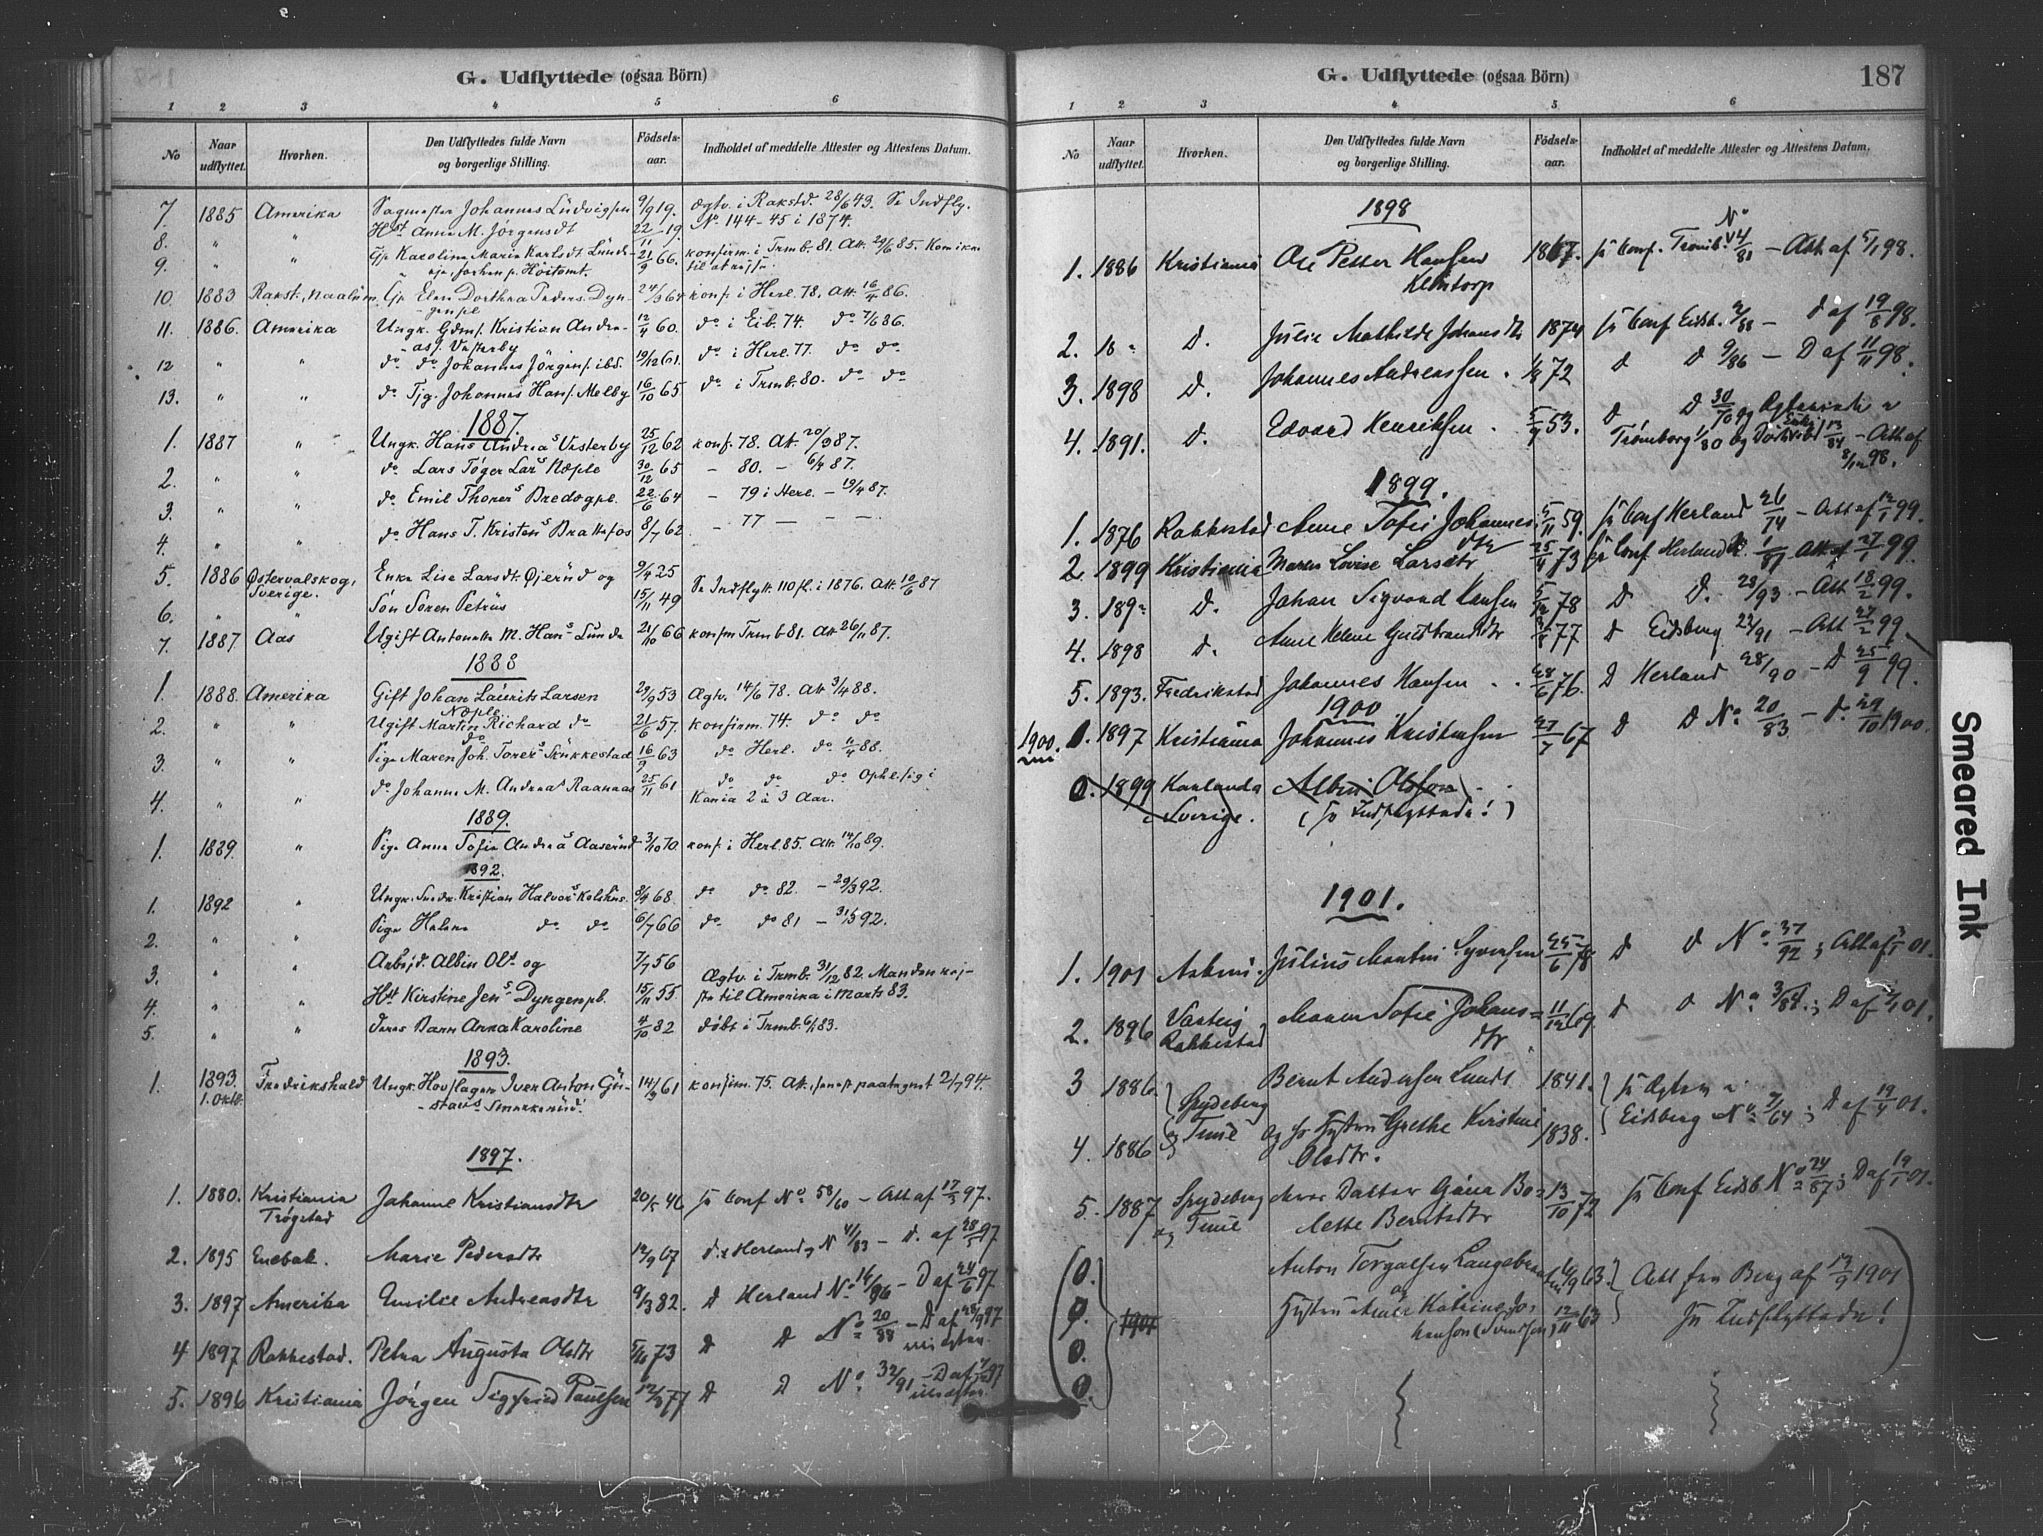 G. Udflyttede (ogsaa Börn)
1 2 3 4 5 6
No Naar udflyttet. Hvorhen. Den Udflyttedes fulde Navn og borgerlige Stilling. Födsels-aar. Indholdet af meddelte Attester og Attestens Datum.
7. 1885 Amerika Sagmester Johannes Ludvigsen 9/9 19. Ægtv. i Rakstd. 28/6 43. Se Indfly.
8. " " Hst Anne M. Jörgensdt 22/11 19. No 144-45 i 1874.
9. " " Gje Karoline Marie Karlsdt Lunde- 21/9 66. konfirm. i Trmb. 81. Att. 29/6 85.
10. 1883 Rakst., Naalum Gje Elen Dorthea Peders. Dyn- 24/3 64 konf. i Herl. 78. Att. 16/4 86.
genpl
11. 1886. Amerika Ungk. Gdms. Kristian Andre- 12/4 60. do i Eib. 74. do 7/6 86.
as. Vesterby
12 " " do do Johannes Jörgens. ibd. 19/12 61. do i Herl. 77. do do
13. " " do Tjg. Johannes Hans. Melby 16/10 65 do i Trmb. 80. do do
1887.
1. 1887 " Ungk. Hans Andreas Vesterby 25/12 62 konf. 78. Att. 20/3 87.
2. " " do Lars Töger Lars Næple 30/12 65 - 80. - 6/4 87.
3. " " do Emil Thorers Bredogpl. 22/6 64 - 79 i Herl. - 19/4 87.
4. " " do Hans T. Kristens Brattefos 8/7 62 - 77 - - -
5. 1886 Østervalskog, Enke Lise Larsdt. Øjerud og 9/4 25 Se Indflytt. 110 fl. i 1876. Att. 10/6 87
Sverige.
6. " " Søn Soren Petrus 15/11 49
7. 1887. Aas Ugift Antonette M. Hans Lunde 21/10 66 konfirm Trmb 81. Att 26/11 87.
1888
1. 1888. Amerika Gift Johan Laurits Larsen 29/9 53 Ægtv. 14/6 78. Att 3/4 88.
Næple
2. " " Ugift Martin Richard do 21/6 57. konfirm. 74. do do
do
3. " " Pige Maren Joh. Torers Stikkestad 16/9 63 do Herl. do 11/4 88.
4. " " do Johanne M. Andreas Raanaas 25/11 61 do do do Ophl. sig i
Kania 2 à 3 Aar.
1889.
1. 1889. " Pige Anna Sofie Andreas Aaserud 3/10 70. konf. i Herl. 85. Att. 14/10 89.
1892.
1. 1892 " Ungk. Snedk. Kristian Halvors Kolshus. 8/4 68. do do 82. - 29/3 92.
2. " " Pige Helene do do 6/7 66 do do 81 - 31/3 92.
3. " " Arbejd. Albin Ols og 7/7 56 Ægtv. i Trmb. 31/12 82 Manden rej-
4. " " Hst Kirstine Jens Dyngenpl. 15/11 55 ste til Amerika i Marts 83.
5. " " Deres Barn Anna Karoline 4/10 82 döbt i Trmb. 6/1 83.
1893.
1. 1893. Fredrikshald Ungk. Hovslager Iver Anton Gu- 14/9 61 konfirm. 75. Att. senest paategnet 2/7 94.
1. Oktb. stavs Smerkerud.
1897.
1. 1880. Kristiania Johanne Kristiansdtr 20/5 46 for Conf No 58/60 - Att af 17/5 97.
Trøgstad
2. 1895 Enebak. Marie Pedersdtr 12/9 67 d. i Herland No 11/83 - D. af 28/5 97
3. 1897 Amerika Emilie Andreasdtr 9/3 82. D Herland No 14/96 - D af 24/6 97
4 1897 Rakkestad. Petra Augusta Olsdtr 5/10 73 D D No 20/88 - D af 28/9 97
5. 1896 Kristiania Jörgen Sigfried Paulsen 12/3 77 D D No 32/91 - D af 97
G. Udflyttede (ogsaa Börn) 187
1 2 3 4 5 6
No Naar udflyttet. Hvorhen. Den Udflyttedes fulde Navn og borgerlige Stilling. Födsels-aar. Indholdet af meddelte Attester og Attestens Datum.
1898
1. 1886 Kristiania Ole Petter Hansen 1867. for Conf. Tromb. No 14/81 - Att af 5/1 98.
Klemtorp
2. 18 " D. Julie Mathilde Johansdtr 1874 for Conf Eidsb. 2/88 - D af 19/8 98.
3. 1898 D. Johannes Andreassen 1/8 72 D D 9/86 - D af 11/11 98.
4. 1891. D. Edvard Henriksen 5/9 53. D D 30/70 og Ægteviede
Trømborg 1/80 og - Att af
8/12 98.
1899.
1. 1876 Rakkestad Anne Sofie Johannes- 5/11 59. for Conf Herland 26/74 - Att af 12/1 99.
dtr
2. 1899 Kristiania Maren Lovise Larsdtr 25/4 73 for Conf Herland 1/87 Att af 27/1 99.
3. 189" D. Johan Sigvard Hansen 5/12 78 D D. 28/93 - Att 18/2 99.
4. 1898 D. Anne Helene Guldbrandsdtr 77 D Eidsberg 23/91 - Att 27/2 99
5. 1893. Fredrikstad Johannes Hansen 28/6 76. D Herland 28/90 - D 25/9 99.
1900
1900. 1. 1897 Kristiania Johannes Kristensen 27/7 67 D D No 20/83 - D. 29/10 1900.
0. 1899 Karlanda Albin Olsson
Sverige. (se Indflyttede!)
1901.
1. 1901 Askim. Julius Martin Syversen 25/6 78 D D No 37/92; Att af 01.
2. 1896 Varteig Maren Sofie Johans- 11/12 69. D D No 3/84; D af 01.
Rakkestad dtr
3 1886. Spydeberg Bernt Andersen Lunds 1841. for Ægtev
4. 1886 og Tmie og hs Hustru Grethe Kirstine 1838. Eidsberg No 7/64; D af 19/4 01.
Olsdtr.
5. 1887 Spydeberg deres Datter Gina Bo- 13/10 72 for Conf Eidsb No 24/87; D af 19/1 01.
og Tmie lette Berntsdtr
0. Anton Torgalsen Langebræ 63. Att fra Berg af 19/9 1901
og
0. 1901 Hustru Amalie Katrine Jo- 12/11 63 Ju Indflyttede!
hanson (Svendsen)
0.
0.
Smeared Ink